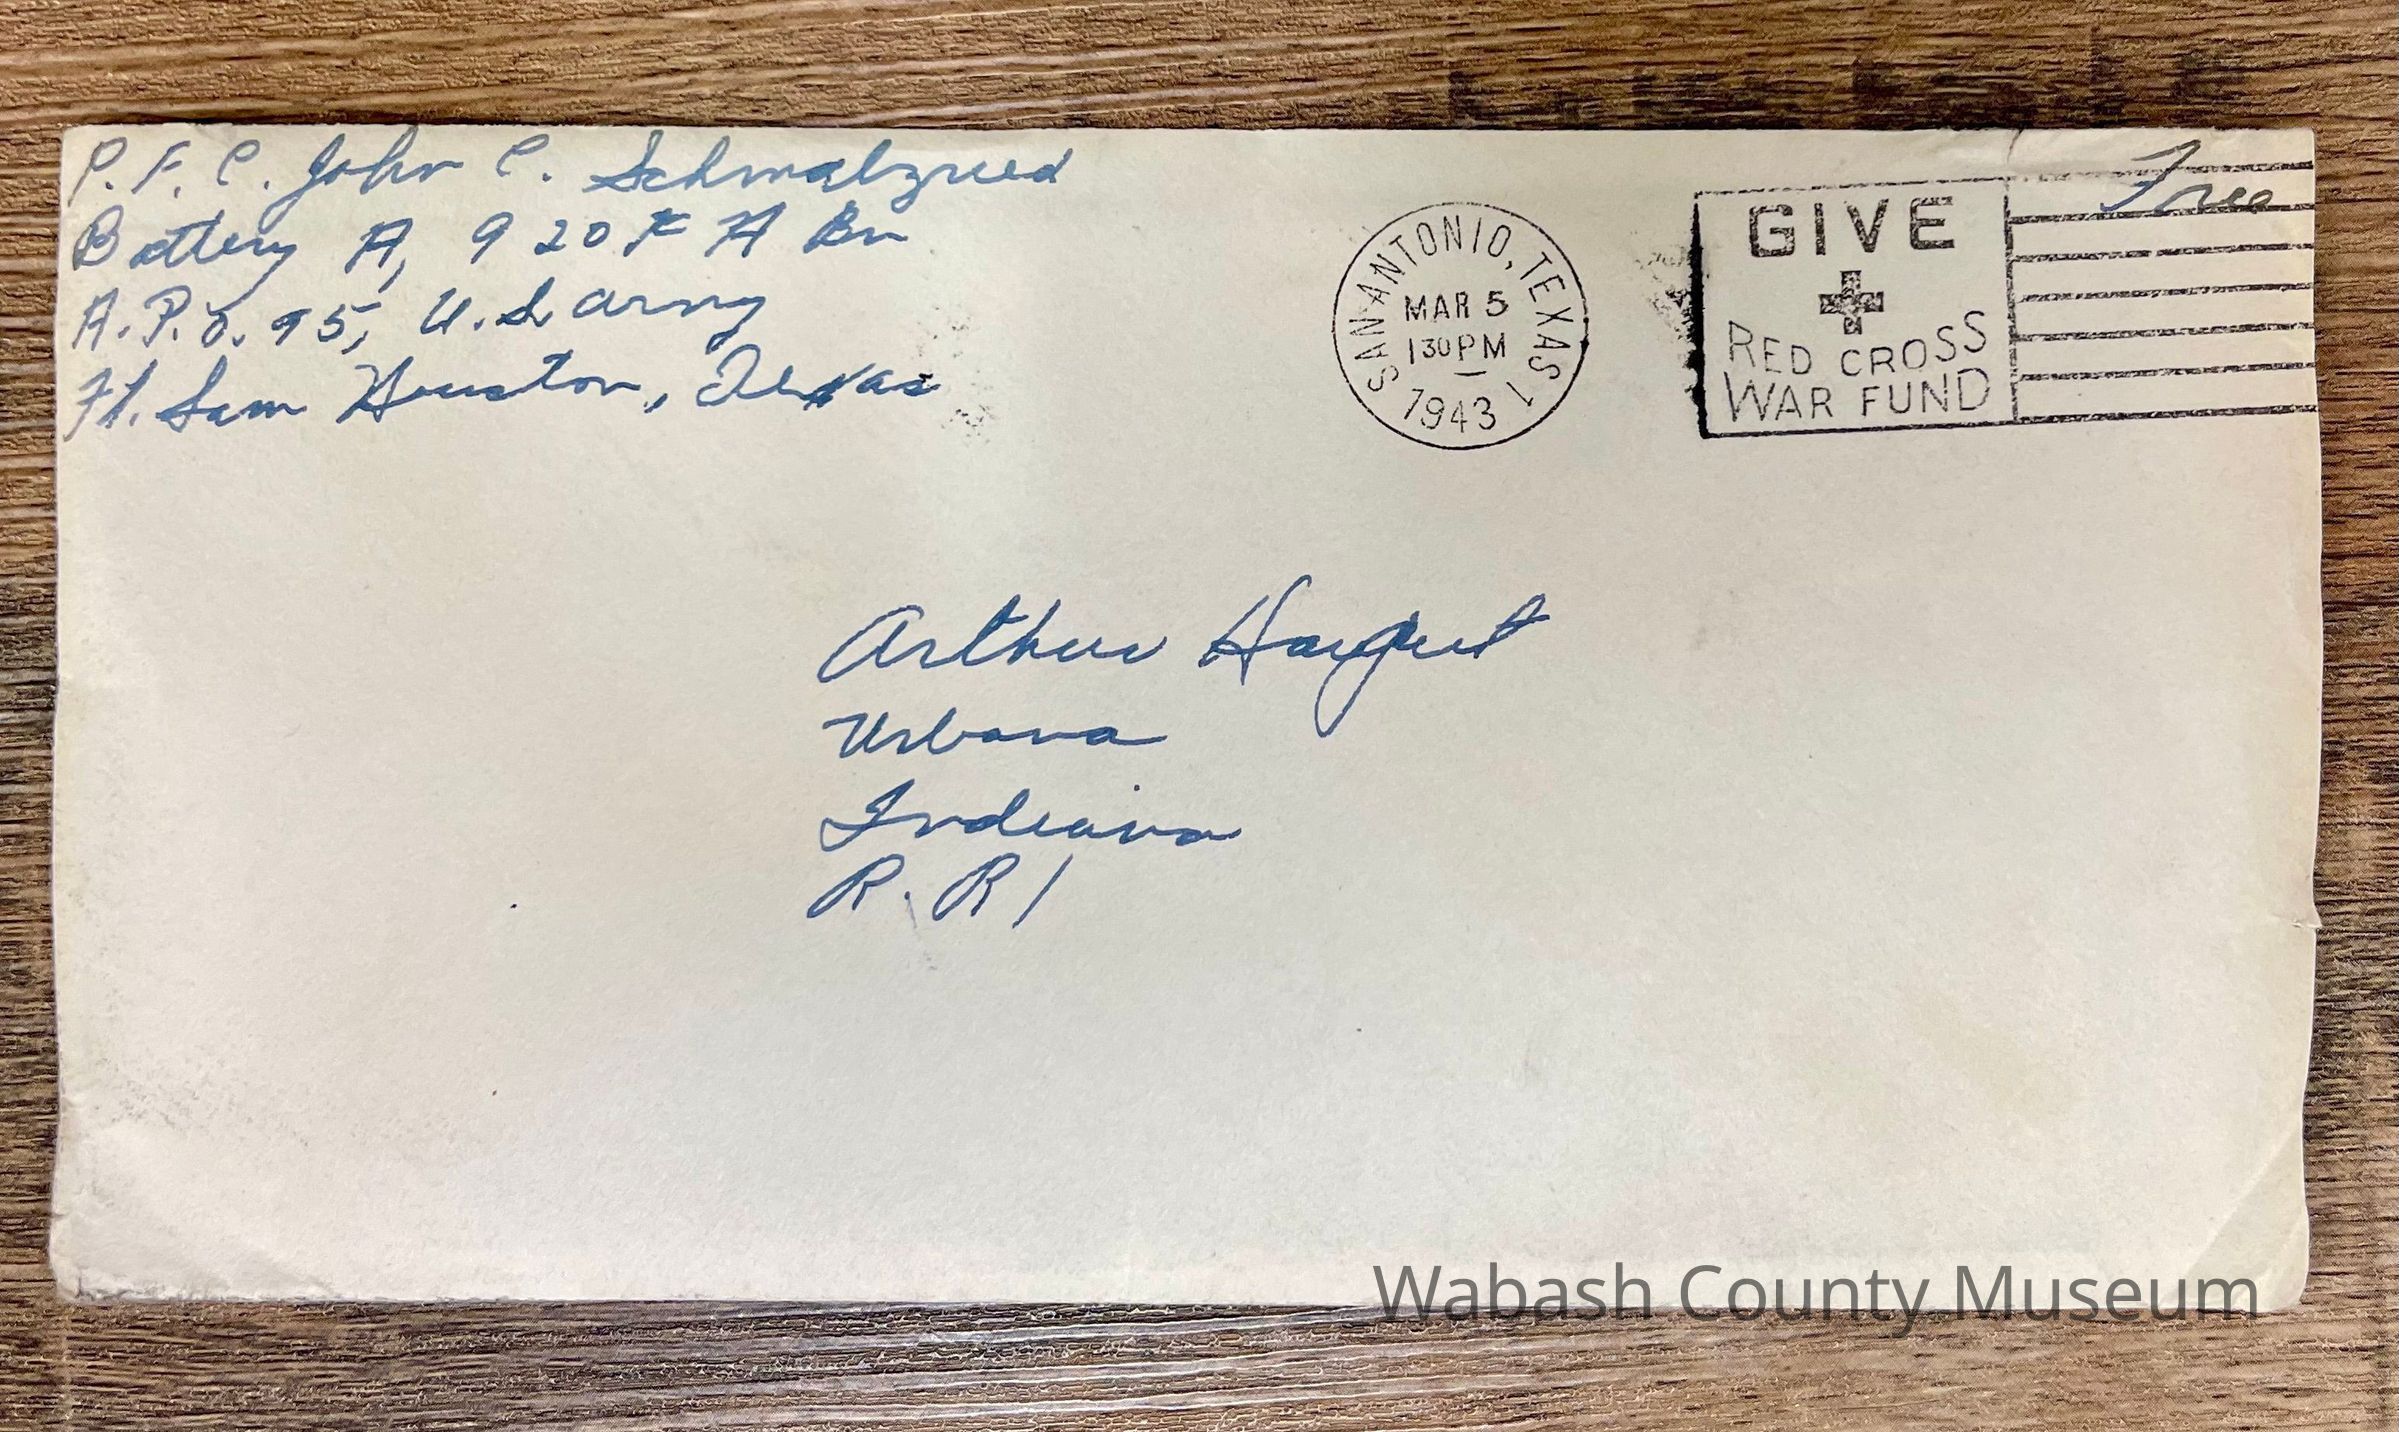 P. F. C. John C. Schmalzried
Battery A, 920 F A Bn
A.P.O. 95, U.S. Army
Ft. Sam Houston, Texas
SAN ANTONIO, TEXAS 1
MAR 5
1 30 PM
1943
GIVE
RED CROSS
WAR FUND
Free
Arthur
Urbana
Indiana
R. R 1
Wabash County Museum